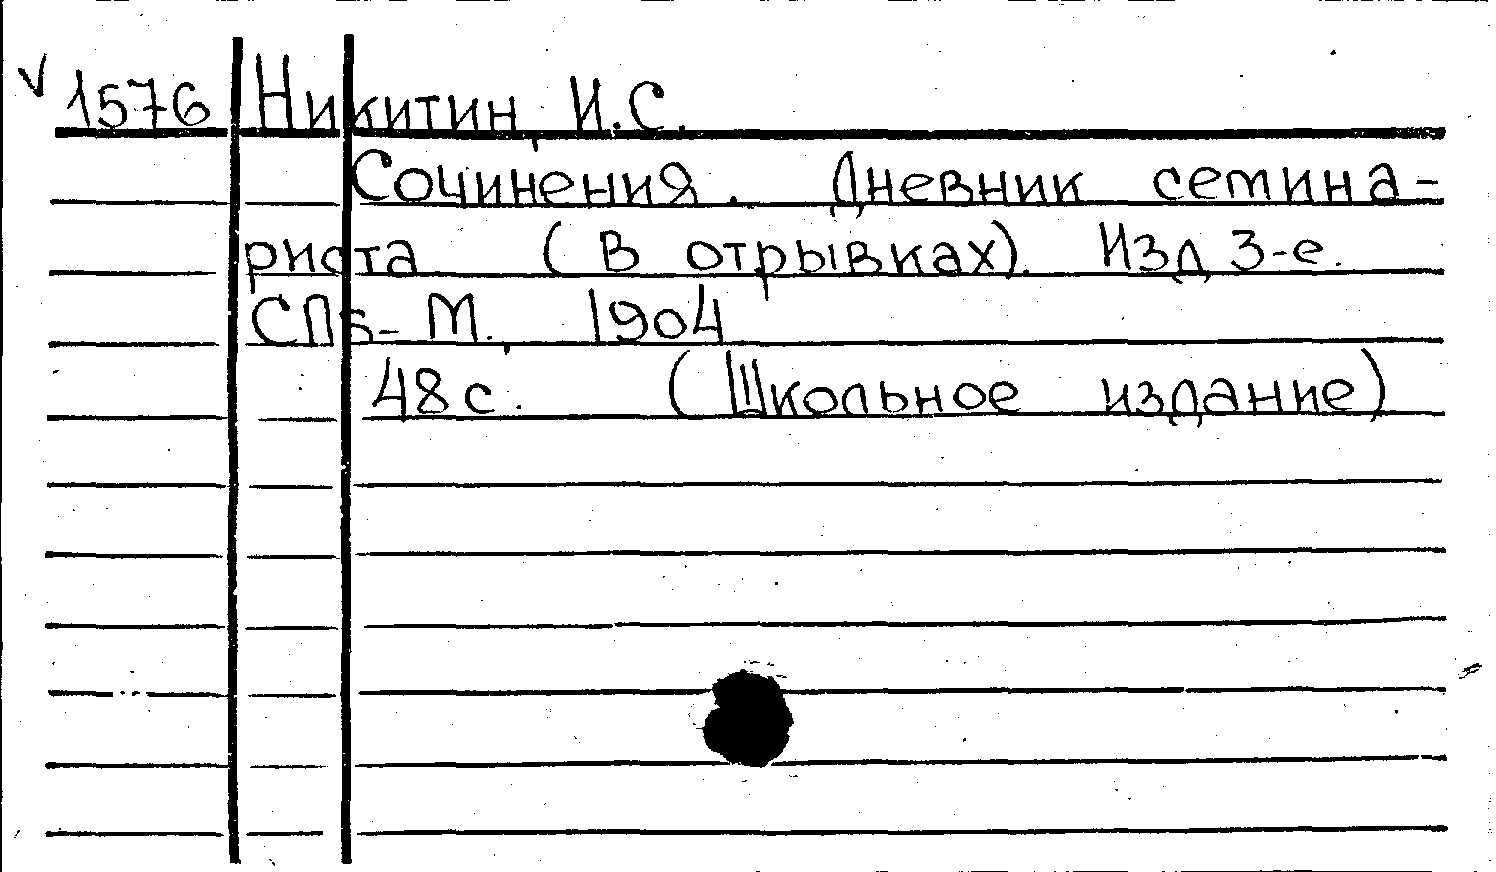 √ 1576 Никитин, И.С.
Сочинения. Дневник семина-
риста (в отрывках). Изд 3-е.
СПб-М., 1904
48 с. (Школьное издание)